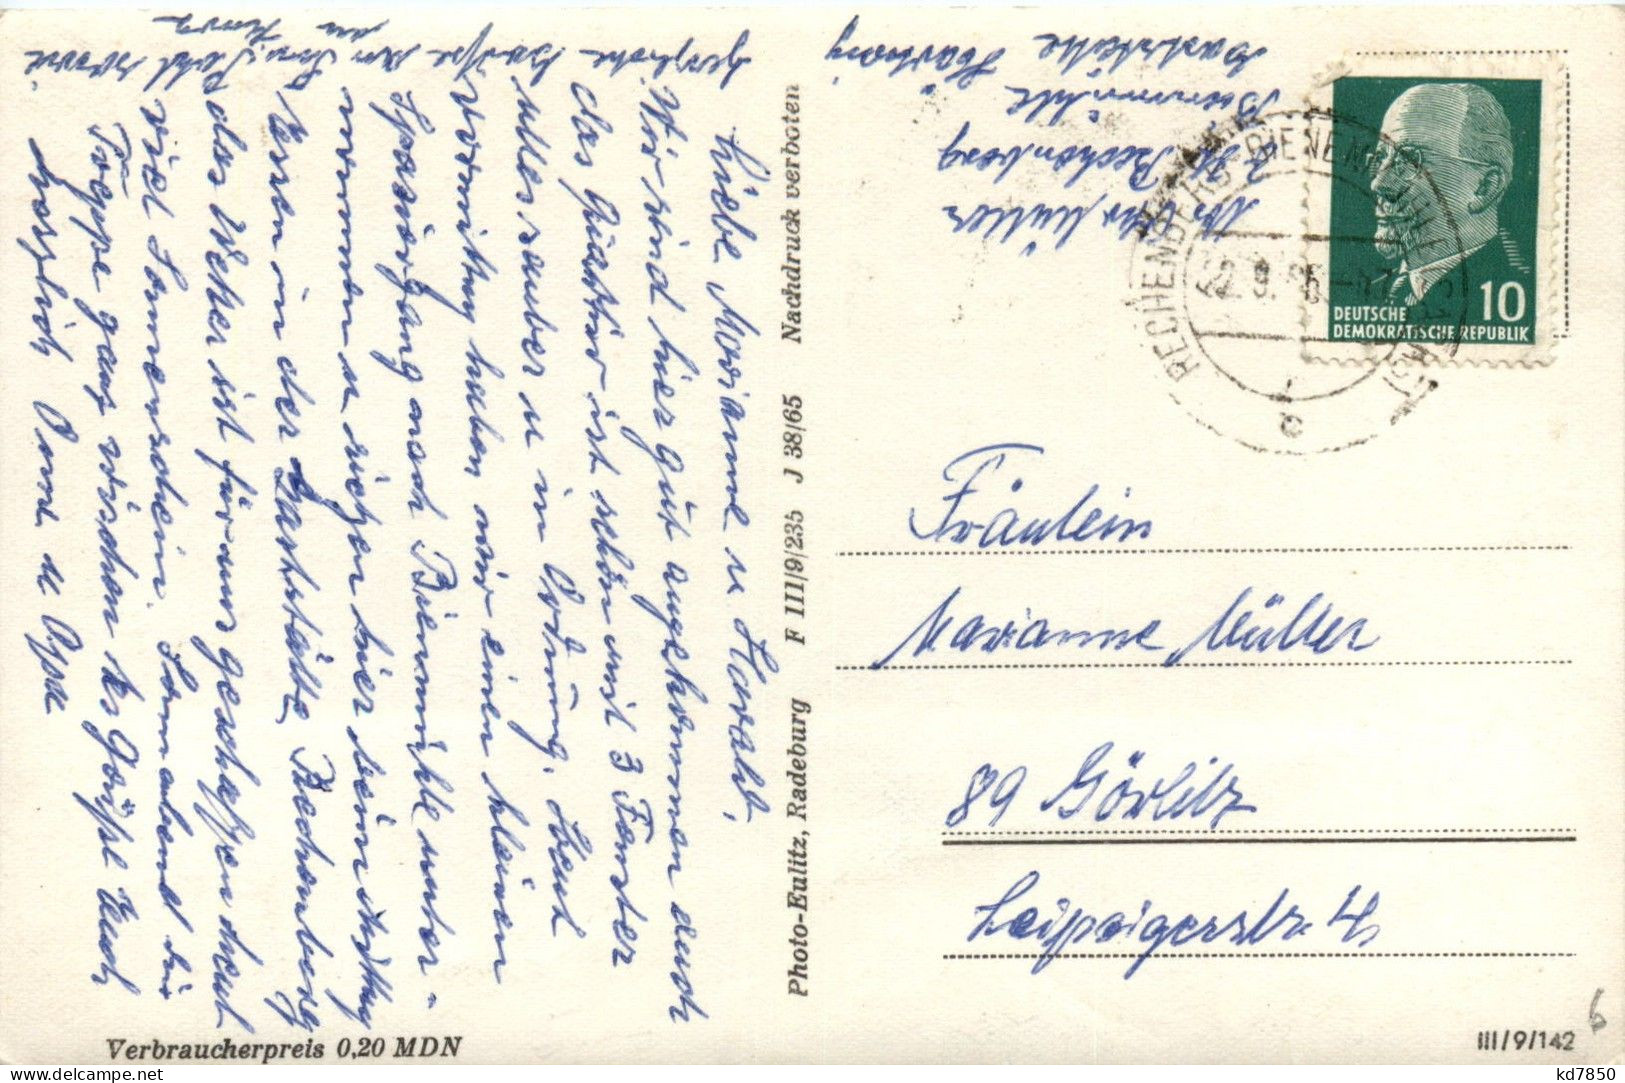 Liebe Marianne u. Harald,
Wir sind hier gut angekommen auch
das Quartier ist schön mit 3 Fenster
alles sauber u in Ordnung. Heut
Vormittag haben wir einen kleinen
Spaziergang nach Bienmühle unter-
nommen u sitzen hier beim Mittag
Essen in der Gaststätte Rechenberg
das Wetter ist für uns geschaffen heut
viel Sonnenschein. Sonnabend bin
ganz wischen
herzlich Oma u Opa
herzliche Grüße an
Abs Müller
Rechenberg
Bienmühle
Gaststätte
Photo-Eulitz, Radeburg F III/9/235 J 38/65 Nachdruck verboten
Verbraucherpreis 0,20 MDN
RECHENBERG-BIENENMÜHLE
DEUTSCHE
DEMOKRATISCHE REPUBLIK
10
Fräulein
Marianne Müller
89 Görlitz
Leipzigerstr. 4
III/9/142
6
https://www.delcampe.net
kd7850